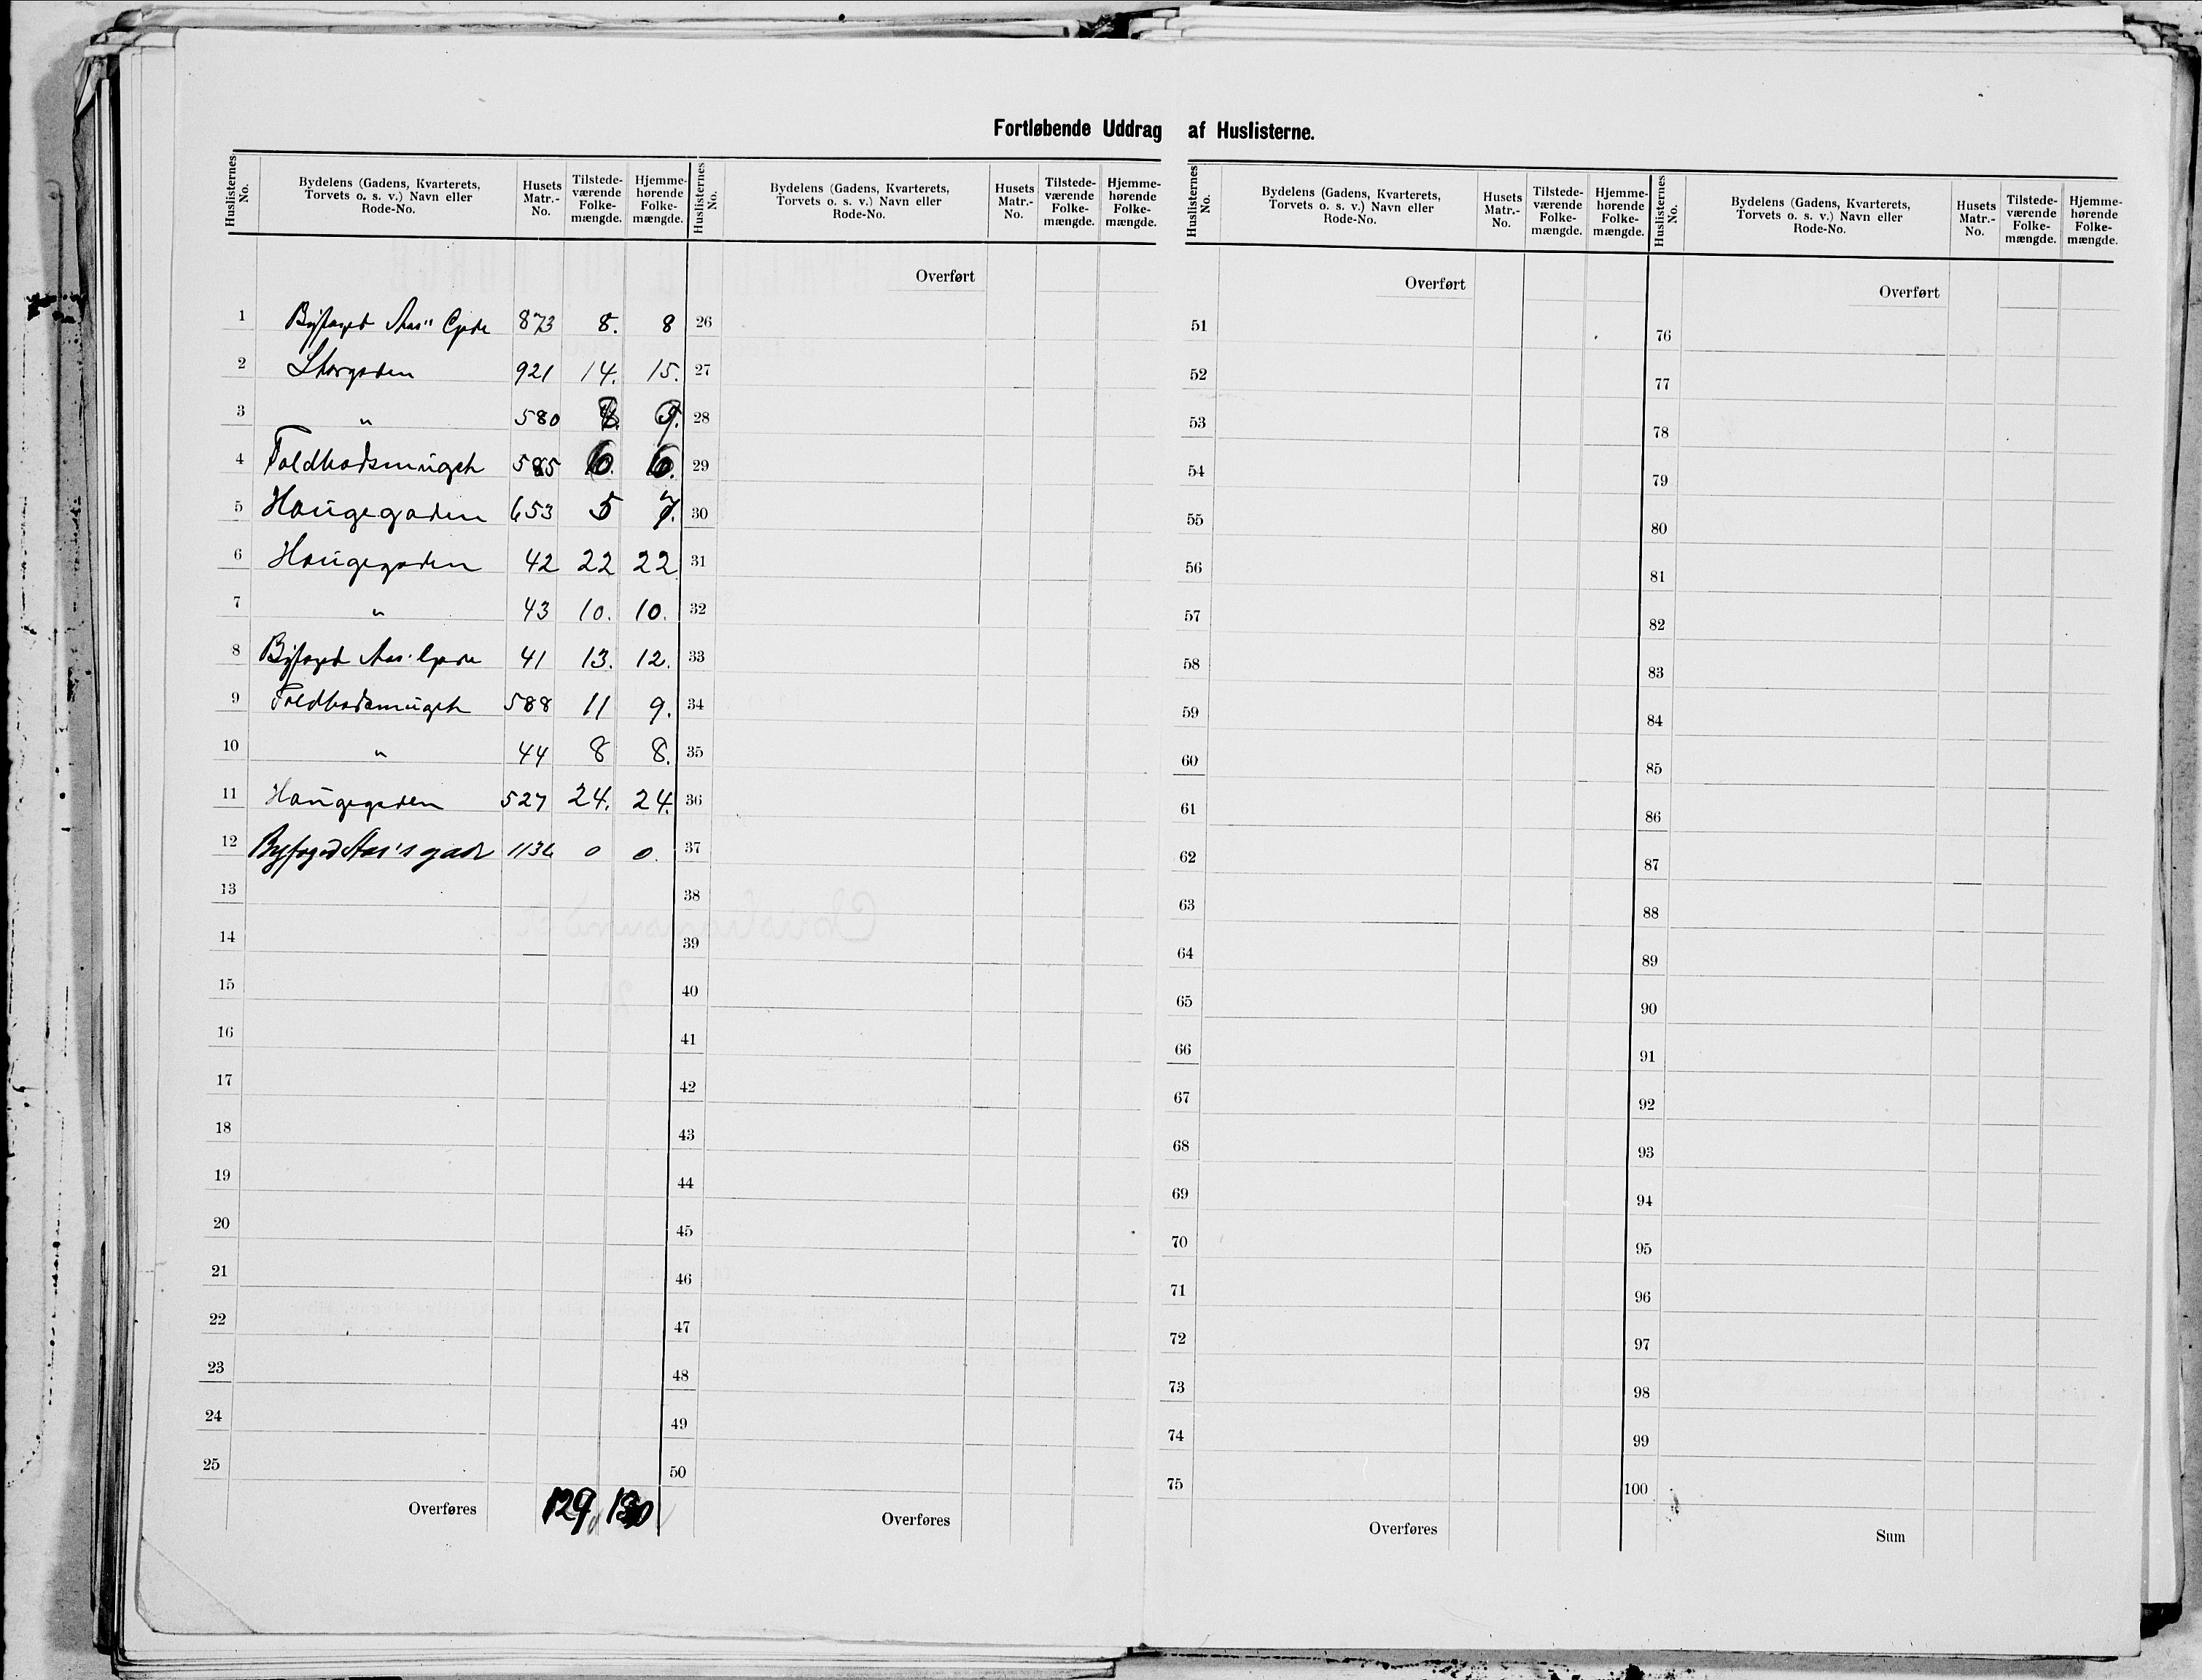 Fortløbende Uddrag af Huslisterne.
Huslisternes No. Bydelens (Gadens, Kvarterets, Torvets o. s. v.) Navn eller Rode-No. Husets Matr.-No. Tilstedeværende Folkemængde. Hjemmehørende Folkemængde.
Huslisternes No. Bydelens (Gadens, Kvarterets, Torvets o. s. v.) Navn eller Rode-No. Husets Matr.-No. Tilstedeværende Folkemængde. Hjemmehørende Folkemængde.
Huslisternes No. Bydelens (Gadens, Kvarterets, Torvets o. s. v.) Navn eller Rode-No. Husets Matr.-No. Tilstedeværende Folkemængde. Hjemmehørende Folkemængde.
Huslisternes No. Bydelens (Gadens, Kvarterets, Torvets o. s. v.) Navn eller Rode-No. Husets Matr.-No. Tilstedeværende Folkemængde. Hjemmehørende Folkemængde.
1 Byfoged Aas" Gade 873 8. 8
2 Storgaden 921 14. 15.
3 " 580
4 Toldbodsmuget 585
5 Haugegaden 653 5 7.
6 Haugegaden 42 22 22
7 " 43 10. 10.
8 Byfoged Aas. Gade 41 13. 12.
9 Toldbodsmuget 588 11 9.
10 " 44 8 8.
11 Haugegaden 527 24. 24.
12 Byfoged Aas's gade 1136 0 0.
13
14
15
16
17
18
19
20
21
22
23
24
25
Overføres 129, 130
Overført
26
27
28
29
30
31
32
33
34
35
36
37
38
39
40
41
42
43
44
45
46
47
48
49
50
Overføres
Overført
51
52
53
54
55
56
57
58
59
60
61
62
63
64
65
66
67
68
69
70
71
72
73
74
75
Overføres
Overført
76
77
78
79
80
81
82
83
84
85
86
87
88
89
90
91
92
93
94
95
96
97
98
99
100
Sum